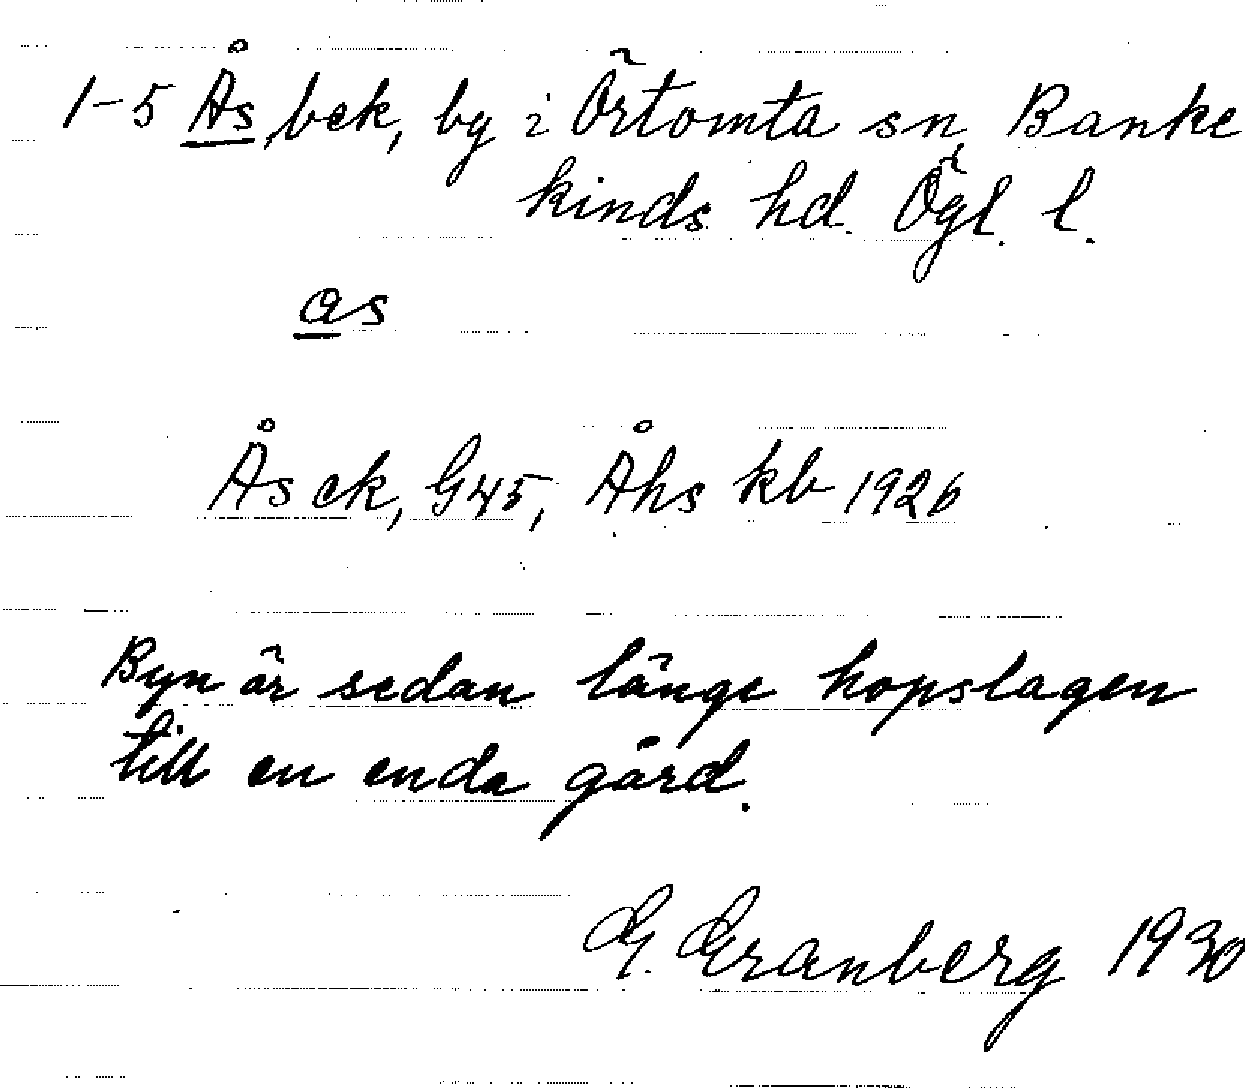 1-5 Ås, bek, by i Örtomta sn, Banke
kinds hd. Ögl. l.
as
Ås ek, G45, Åhs kb 1926
Byn är sedan länge hopslagen
till en enda gård.
G. Granberg 1930